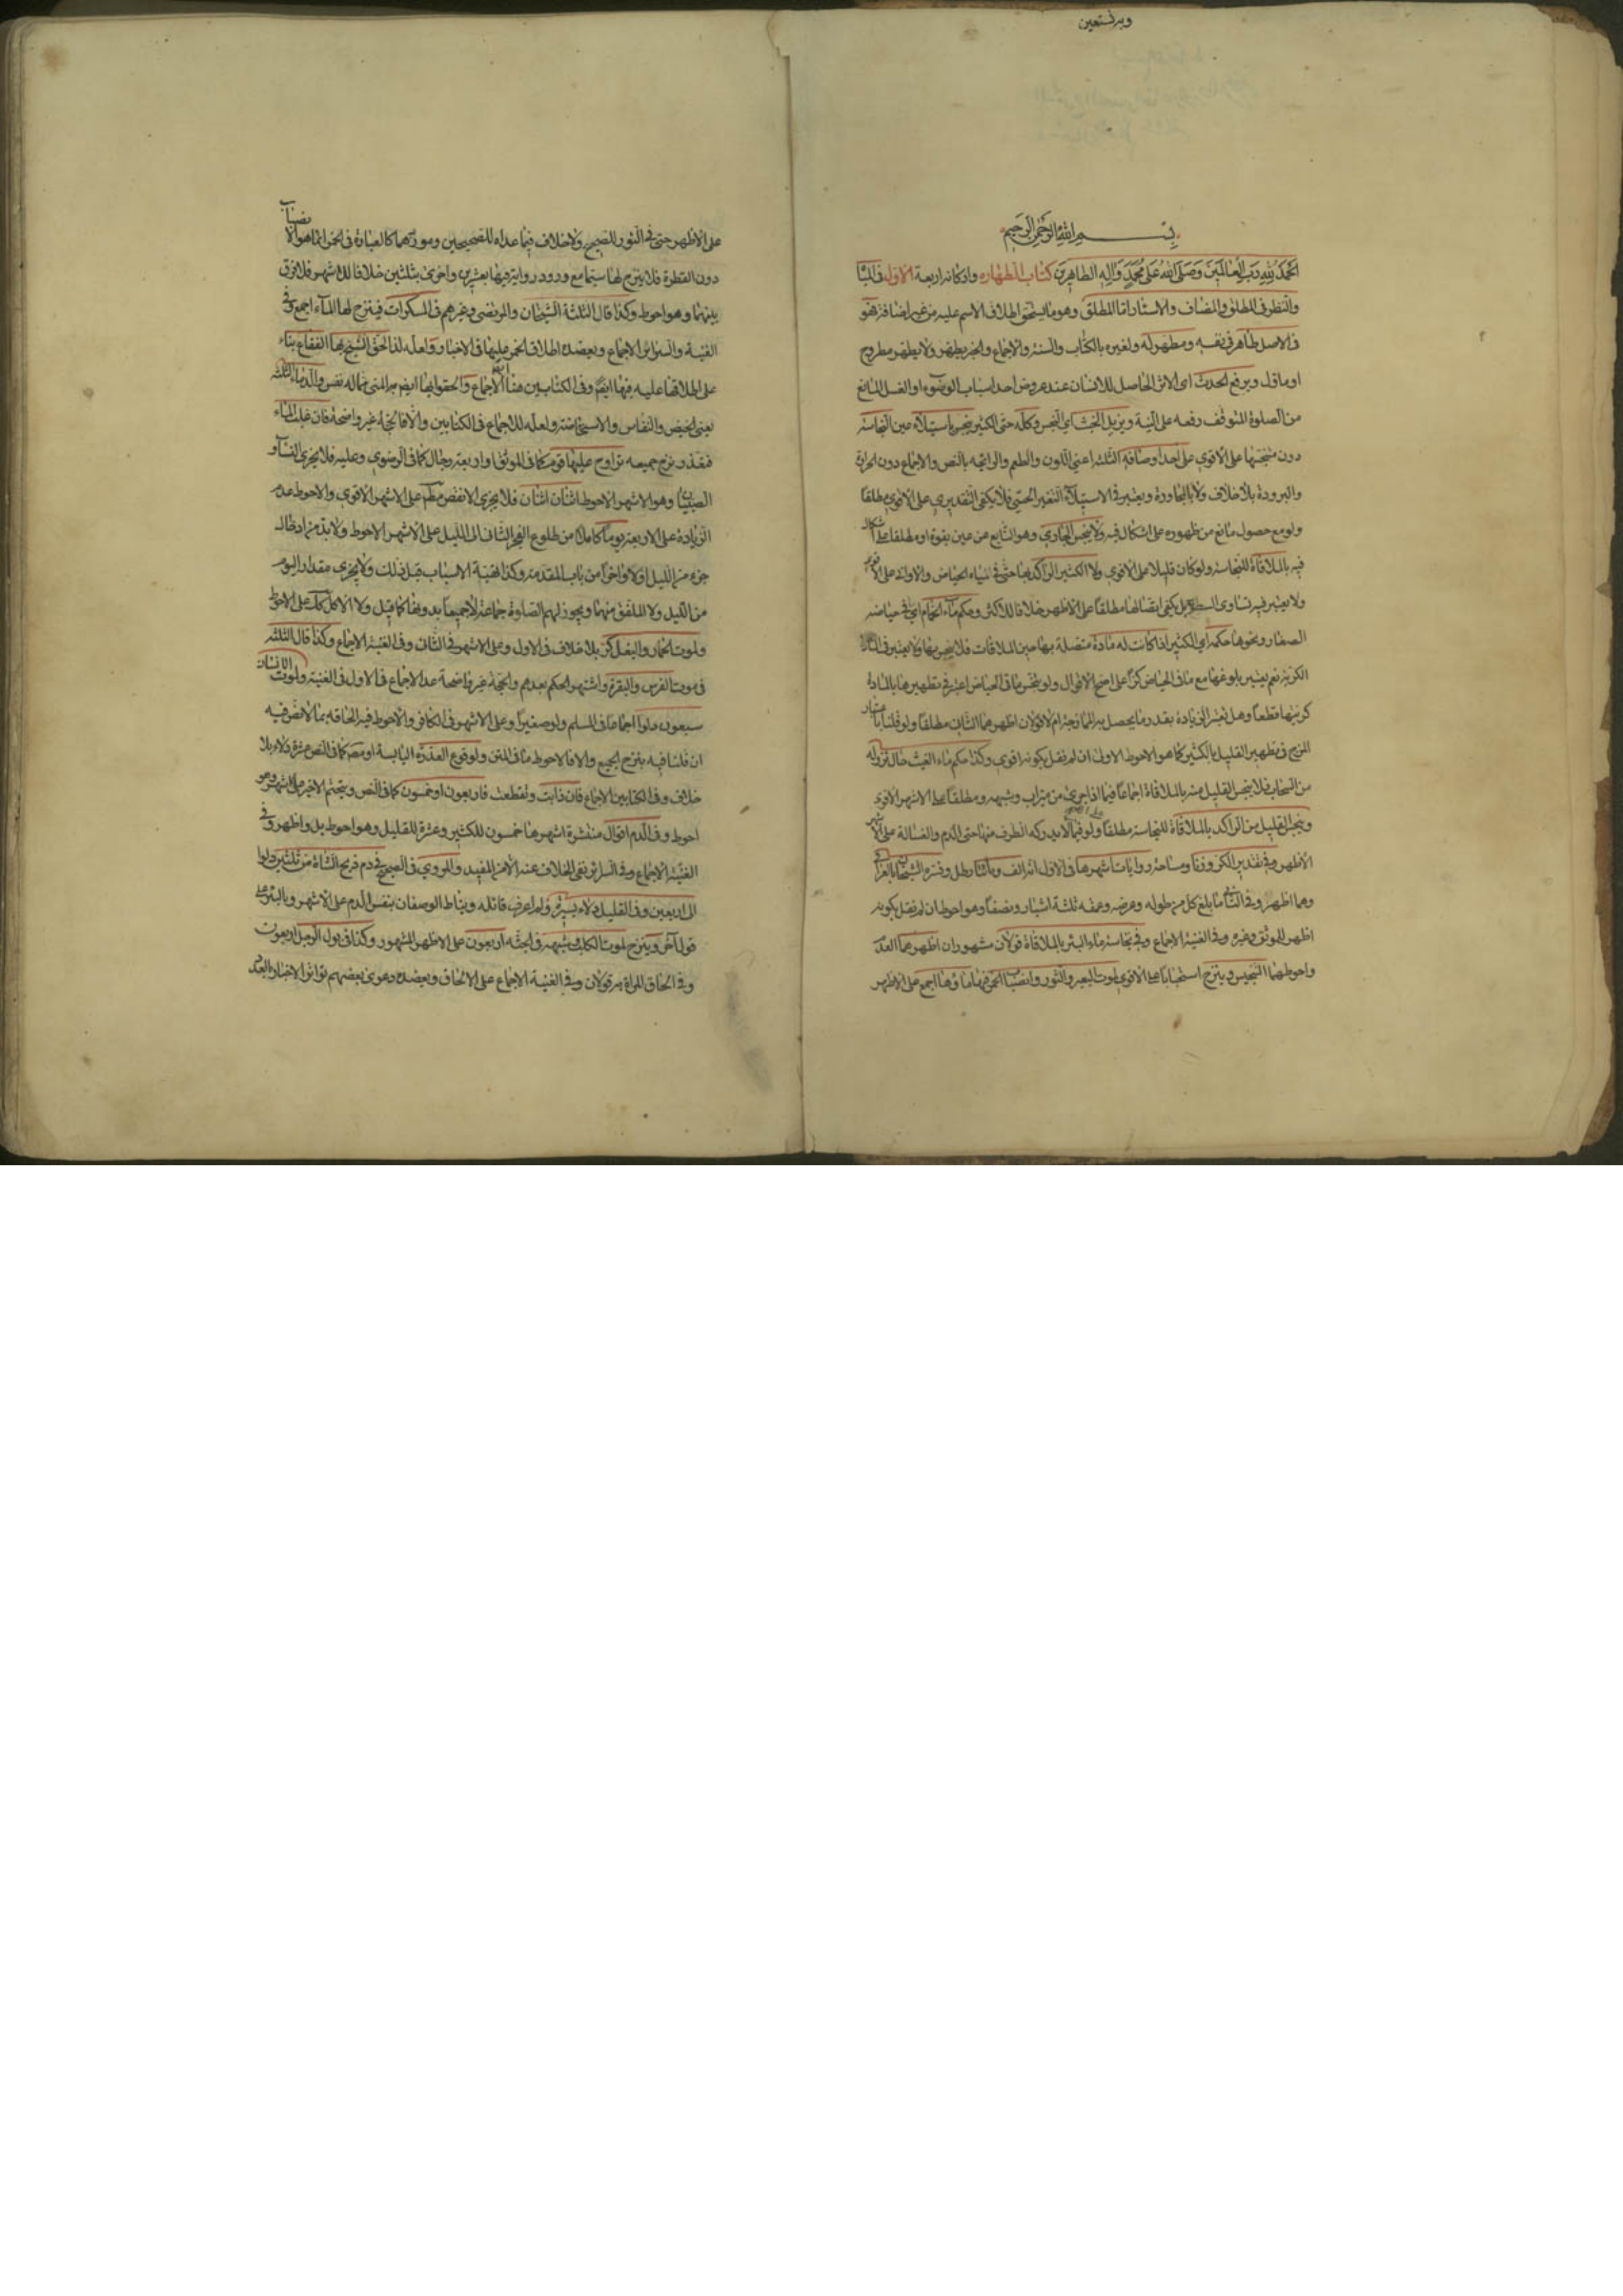 وبه نستعين
بسم الله الرحمن الرحيم
الحمد لله رب العالمين وصلى الله على محمد واله الطاهرين كتاب الطهارة واركانه اربعة الاول في المياه
والنظر في المطلق والمضاف والاسئار اما المطلق وهو ما يستحق اطلاق الاسم عليه من غير اضافة فهو
في الاصل طاهر في نفسه ومطهر له ولغيره بالكتاب والسنة والاجماع والخبر يطهر ولا يطهر مطروح
او ماول ويرفع الحدث اي الاثر الحاصل للانسان عند عروض احد اسباب الوضوء او الغسل المانع
من الصلوة المتوقف رفعه على النية ويزيل الخبث اي النجس وكله حتى الكثير ينجس باستيلاء عين النجاسة
دون متنجسها على الاقوى على احد اوصافه الثلثة اعني اللون والطعم والرائحة بالنص والاجماع دون الحرارة
والبرودة بلا خلاف ولا بالمجاورة ويعتبر في الاستيلاء التغير الحسي فلا يكفي التقديري على الاقوى مطلقا
ولو مع حصول مانع من ظهوره على اشكال فيه ولا ينجس الجاري وهو النابع من عين بقوة او مطلقا على اشكال
فيه بالملاقاة للنجاسة ولو كان قليلا على الاقوى ولا الكثير الراكد بها حتى في مياه الحياض والاواني على الاقوى
ولا يعتبر فيه تساوى السطوح بل يكفي اتصالها مطلقا على الاظهر خلافا للاكثر وحكم ماء الحمام اي في حياضه
الصغار ونحوها حكمه اي الكثير اذا كانت له مادة متصلة بها حين الملاقات فلا ينجس بها ولا يعتبر في المادة
الكرية نعم يعتبر بلوغها مع ما في الحياض كرا على اصح الاقوال ولو نجس ما في الحياض اعتبر في تطهيرها بالمادة
كريتها قطعا وهل تعتبر الزيادة بقدر ما يحصل به الممازجة ام لا قولان اظهرهما الثاني مطلقا ولو قلنا باعتبار
المزج في تطهير القليل بالكثير كما هو الاحوط الاولى ان لم نقل بكونه اقوى وكذا حكم ماء الغيث حال نزوله
من السحاب فلا ينجس القليل منه بالملاقاة اجماعا فيما اذا جرى من ميزاب وشبهه ومطلقا على الاشهر الاقوى
وينجس القليل من الراكد بالملاقاة للنجاسة مطلقا ولو فيما لا يدركه الطرف منها حتى الدم والغسالة على الاشهر
الاظهر وفي تقدير الكر وزنا ومساحة روايات اشهرها في الاول انه الف ومائتا رطل وفسره الشيخان بالعراقي
وهما اظهر وفي الثاني ما بلغ كل من طوله وعرضه وعمقه ثلثة اشبار ونصفا وهو احوط ان لم نقل بكونه
اظهر للموثق وغيره وفي الغنية الاجماع وفي نجاسة ماء البئر بالملاقاة قولان مشهوران اظهرهما العدم
واحوطهما التنجيس وينزح استحبابا على الاقوى لموت البعير والثور وانصباب الخمر فيها ماؤها اجمع على الاظهر
على الاظهر حتى في الثور للصحيح ولا خلاف فيما عداه للصحيحين وموردهما كالعبارة في الخمر انما هو الانصباب
دون القطرة فلا ينزح لها سيما مع ورود رواية فيها بعشرين واخرى بثلثين خلافا للاشهر فلا فرق
بينهما وهو احوط وكذا قال الثلثة الشيخان والمرتضى وغيرهم في المسكرات فينزح لها الماء اجمع وفي
الغنية والسرائر الاجماع ويعضده اطلاق الخمر عليها في الاخبار ولعله لذا الحق الشيخ بها الفقاع بناء
على اطلاقها عليه فيها ايضا وفي الكتابين هنا الاجماع والحقوا بها ايضا المني مما له نفس والدماء الثلثة
يعني الحيض والنفاس والاستحاضة ولعله للاجماع في الكتابين والا فالحجة غير واضحة فان غلب الماء
فتعذر نزح جميعه تراوح عليها قوم كما في الموثق او اربعة رجال كما في الرضوي وعليه فلا يجزي النساء و
الصبيان وهو الاشهر الاحوط اثنان اثنان فلا يجزي الانقص مطلقا على الاشهر الاقوى والاحوط عدم
الزيادة على الاربعة يوما كاملا من طلوع الفجر الثاني الى الليل على الاشهر الاحوط ولا بد من ادخال
جزء من الليل اولا واخرا من باب المقدمة وكذا تهيئة الاسباب قبل ذلك ولا يجزي مقدار اليوم
من الليل ولا الملفق منهما ويجوز لهم الصلوة جماعة لا جميعا بدونها كما قيل ولا الاكل كذلك على الاحوط
ولموت الحمار والبغل كر بلا خلاف في الاول وعلى الاشهر في الثاني وفي الغنية الاجماع وكذا قال الثلثة
في موت الفرس والبقرة واشتهر الحكم بعدهم والحجة غير واضحة عدا الاجماع في الاول في الغنية ولموت الانسان
سبعون دلوا اجماعا في المسلم ولو صغيرا وعلى الاشهر في الكافر والاحوط فيه الحاقه بما لا نص فيه
ان قلنا فيه بنزح الجميع والا فالاحوط ما في المتن ولوقوع العذرة اليابسة عشرة دلاء بلا
خلاف وفي الكتابين الاجماع فان ذابت وتقطعت فاربعون او خمسون كما في النص ويتحتم الاخير على المشهور وهو
احوط وفي الدم اقوال منتشرة اشهرها خمسون للكثير وعشرة للقليل وهو احوط بل واظهر وفي
الغنية الاجماع وفي السرائر نفي الخلاف عنه الا من المفيد والمروي في الصحيح في دم ذبح الشاة من ثلثين دلوا
الى اربعين وفي القليل دلاء يسيرة ولم اعرف قائله ويناط الوصفان بنفس الدم على الاشهر وبالبئر على
قول اخر وينزح لموت الكلب وشبهه في الجثة اربعون على الاظهر المشهور وكذا في بول الرجل اربعون
وفي الحاق المراة به قولان وفي الغنية الاجماع على الالحاق ويعضده دعوى بعضهم تواتر الاخبار بالعدم